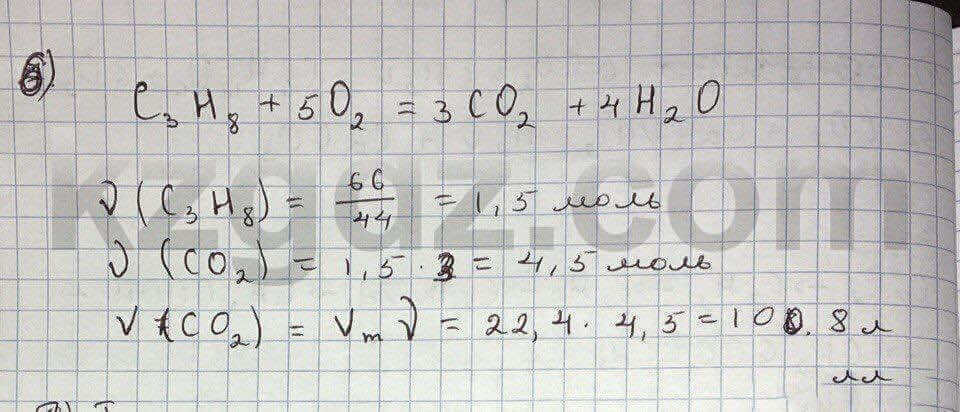 б)
C₃H₈ + 5O₂ = 3CO₂ + 4H₂O
ν (C₃H₈) = 66/44 = 1,5 моль
ν (CO₂) = 1,5 · 3 = 4,5 моль
V (CO₂) = Vₘ ν = 22,4 · 4,5 = 100.8 л
kzgdz.com